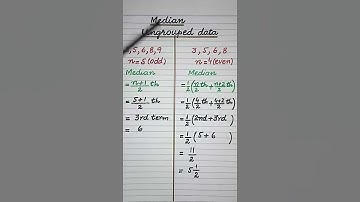 Median
Ungrouped data
3,5,6,8,9
n=5(odd)
Median
= n+1/2 th
= 5+1/2
= 3rd term
= 6
3, 5, 6, 8
n=4(even)
Median
=1/2(n/2 th + n+2/2 th)
=1/2(4/2 th + 4+2/2 th)
=1/2(2nd+3rd)
=1/2(5+6)
= 11/2
= 5 1/2